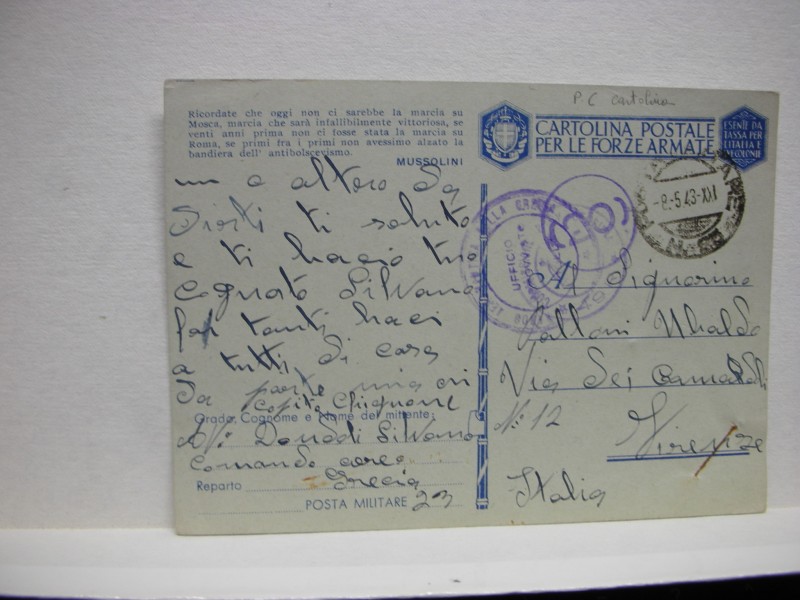 P.C cartolina
Ricordate che oggi non ci sarebbe la marcia su
Mosca, marcia che sarà infallibilmente vittoriosa, se
venti anni prima non ci fosse stata la marcia su
Roma, se primi fra i primi non avessimo alzato la
bandiera dell' antibolscevismo.
MUSSOLINI
CARTOLINA POSTALE
PER LE FORZE ARMATE
ESENTE DA
TASSA PER
L'ITALIA E
COLONIE
-8-5.43-XXI
UFFICIO
e altero da
ti saluto
e ti bacio tuo
Cognato Silvano
tanti baci
a tutti di casa
da parte mia
Grado, Cognome e Nome del mittente:
Silvano
Comando aereo
Grecia
Reparto
POSTA MILITARE 23
Al Signorino
Galloni Ubaldo
Via dei Camaldoli
N: 12
Firenze
Italia